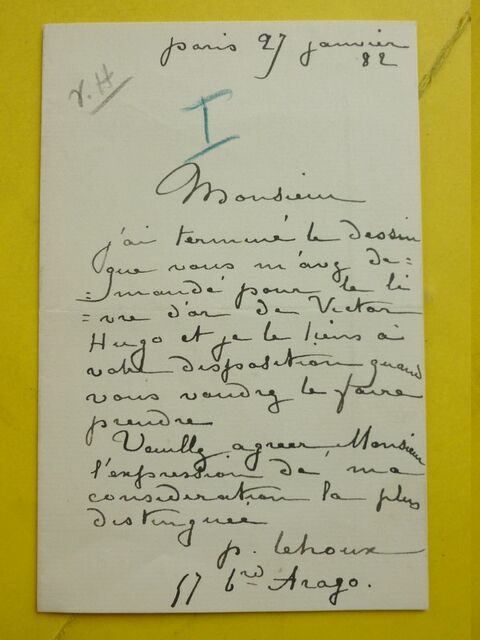 paris 27 janvier
82
V.H
I
Monsieur
j'ai terminé le dessin
que vous m'avez de=
=mandé pour le li
=vre d'or de Victor
Hugo et je le tiens à
votre disposition quand
vous voudrez le faire
prendre
Veuillez agréer Monsieur
l'expression de ma
consideration la plus
distinguée
p. Lehoux
57 b^rd Arago.